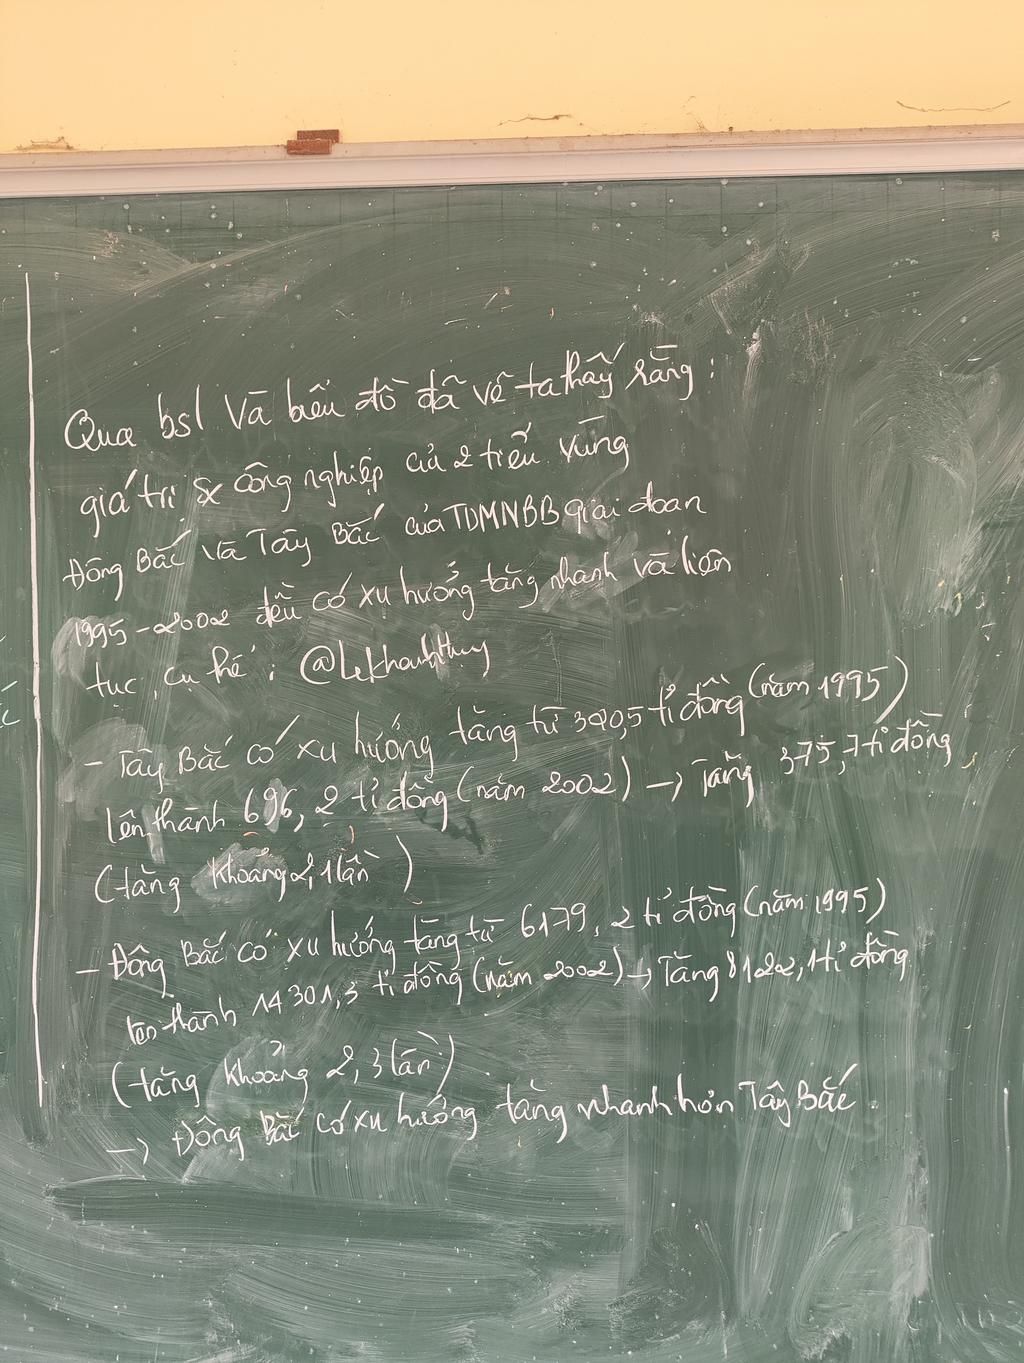 Qua bsl và biểu đồ đã vẽ ta thấy rằng :
giá trị sx công nghiệp của 2 tiểu vùng
Đông Bắc và Tây Bắc của TDMNBB giai đoạn
1995-2002 đều có xu hướng tăng nhanh và liên
tục, cụ thể : @lekhanhthuy
- Tây Bắc có xu hướng tăng từ 320,5 tỉ đồng (năm 1995)
lên thành 696,2 tỉ đồng (năm 2002) → Tăng 375,7 tỉ đồng
(tăng khoảng 2,1 lần)
- Đông Bắc có xu hướng tăng từ 6179,2 tỉ đồng (năm 1995)
lên thành 14301,3 tỉ đồng (năm 2002) → Tăng 8122,1 tỉ đồng
(tăng khoảng 2,3 lần)
→ Đông Bắc có xu hướng tăng nhanh hơn Tây Bắc.